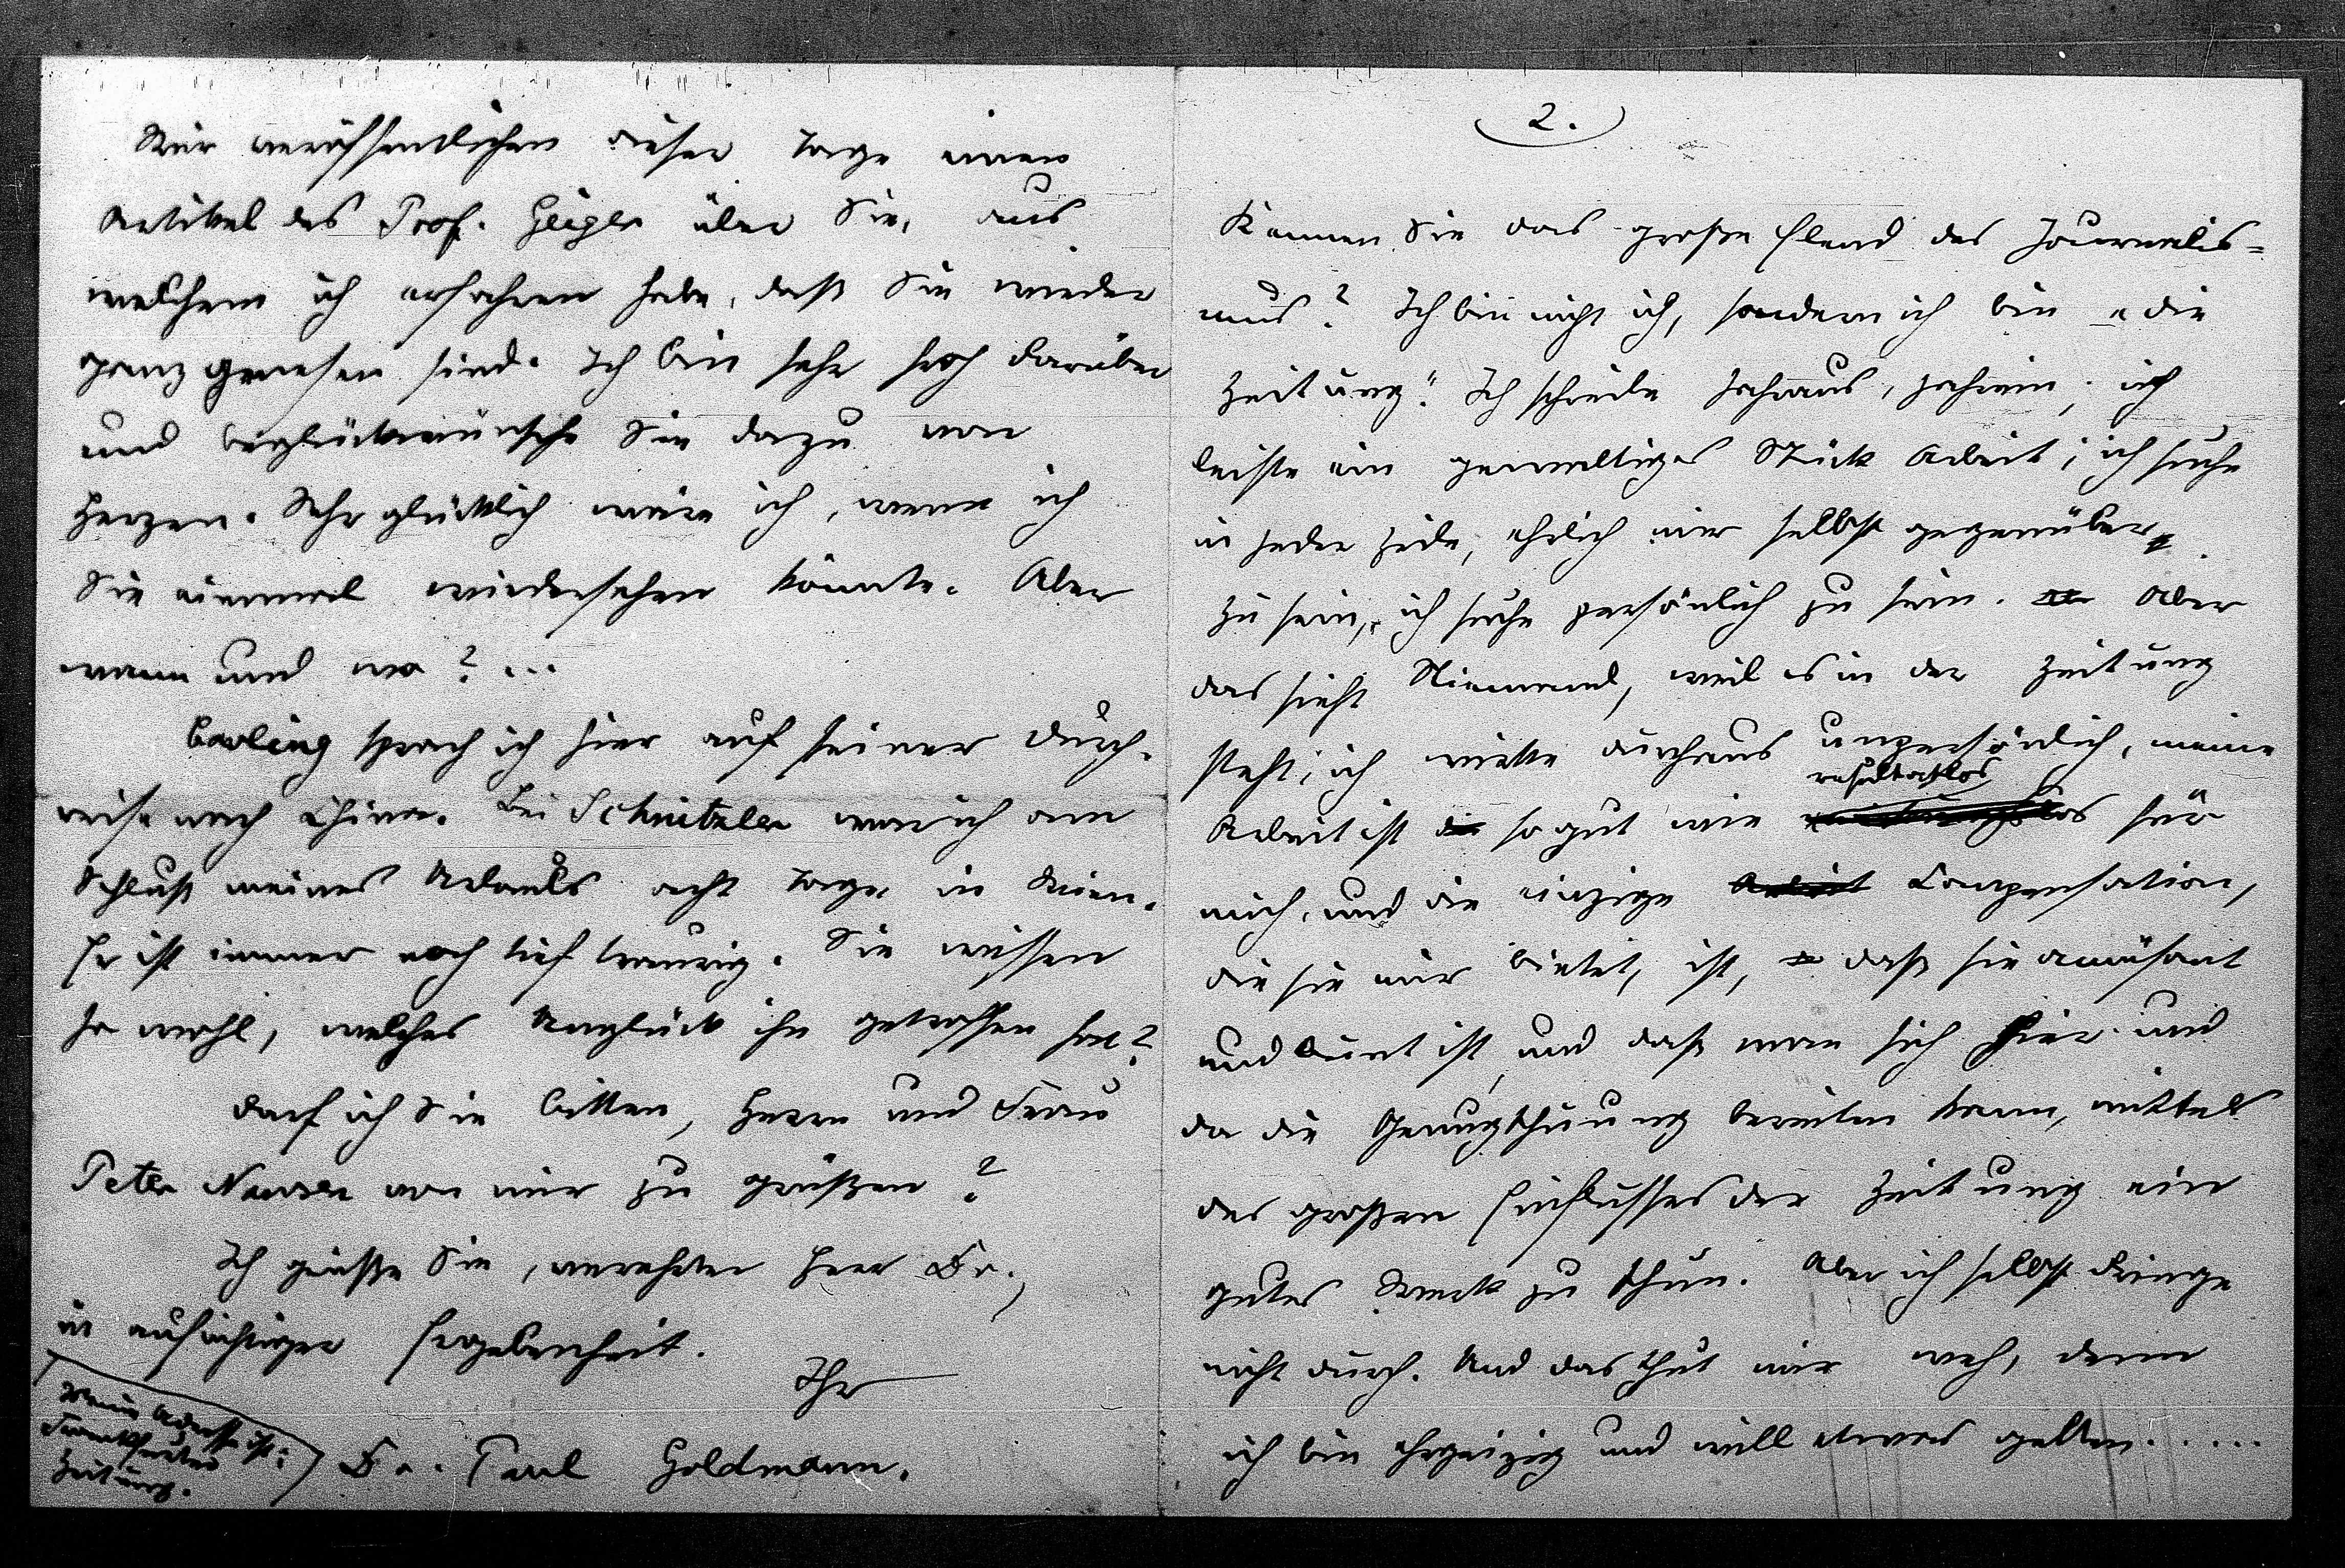 Wir veröffentlichen dieser Tage einen
Artikel des Prof. Geiger über Sie, aus
welchem ich erfahren habe, daß Sie wieder
ganz genesen sind. Ich bin sehr froh darüber
und beglückwünsche Sie dazu von
Herzen. Sehr glücklich wäre ich, wenn ich
Sie einmal wiedersehen könnte. Aber
wann und wo? ...
sprach ich hier auf seiner Durch-
reise nach China. Bei Schnitzler war ich am
Schluß meines Urlaubs acht Tage in Wien.
Er ist immer noch tief traurig. Sie wissen
ja wohl, welches Unglück ihn getroffen hat?
Darf ich Sie bitten, Herrn und Frau
Peter Nansen von mir zu grüßen?
Ich grüße Sie, verehrter Herr Dr.,
in aufrichtiger Ergebenheit.
Ihr
Dr. Paul Goldmann.
Meine Adresse ist:
Frankfurter
Zeitung.
2.
Kennen Sie das große Elend des Journalis=
mus? Ich bin nicht ich, sondern ich bin „die
Zeitung". Ich schreibe jahraus, jahrein; ich
leiste ein gewaltiges Stück Arbeit; ich suche
in jeder Zeile, ehrlich mir selbst gegenüber
zu sein, ich suche persönlich zu sein. Aber
das sieht Niemand, weil es in der Zeitung
steht; ich wirke durchaus unpersönlich, meine
resultatlos
Arbeit ist so gut wie für
mich, und die einzige Arbeit Compensation,
die sie mir bietet, ist, daß sie amüsant
und bunt ist, und daß man sich hier und
da die Genugthuung bereiten kann, mittels
des großen Einflusses der Zeitung ein
gutes Werk zu thun. Aber ich selbst dringe
nicht durch. Und das thut mir weh, denn
ich bin ehrgeizig und will etwas gelten. ....